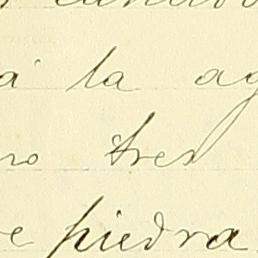 á la ag
ro tres
e piedra